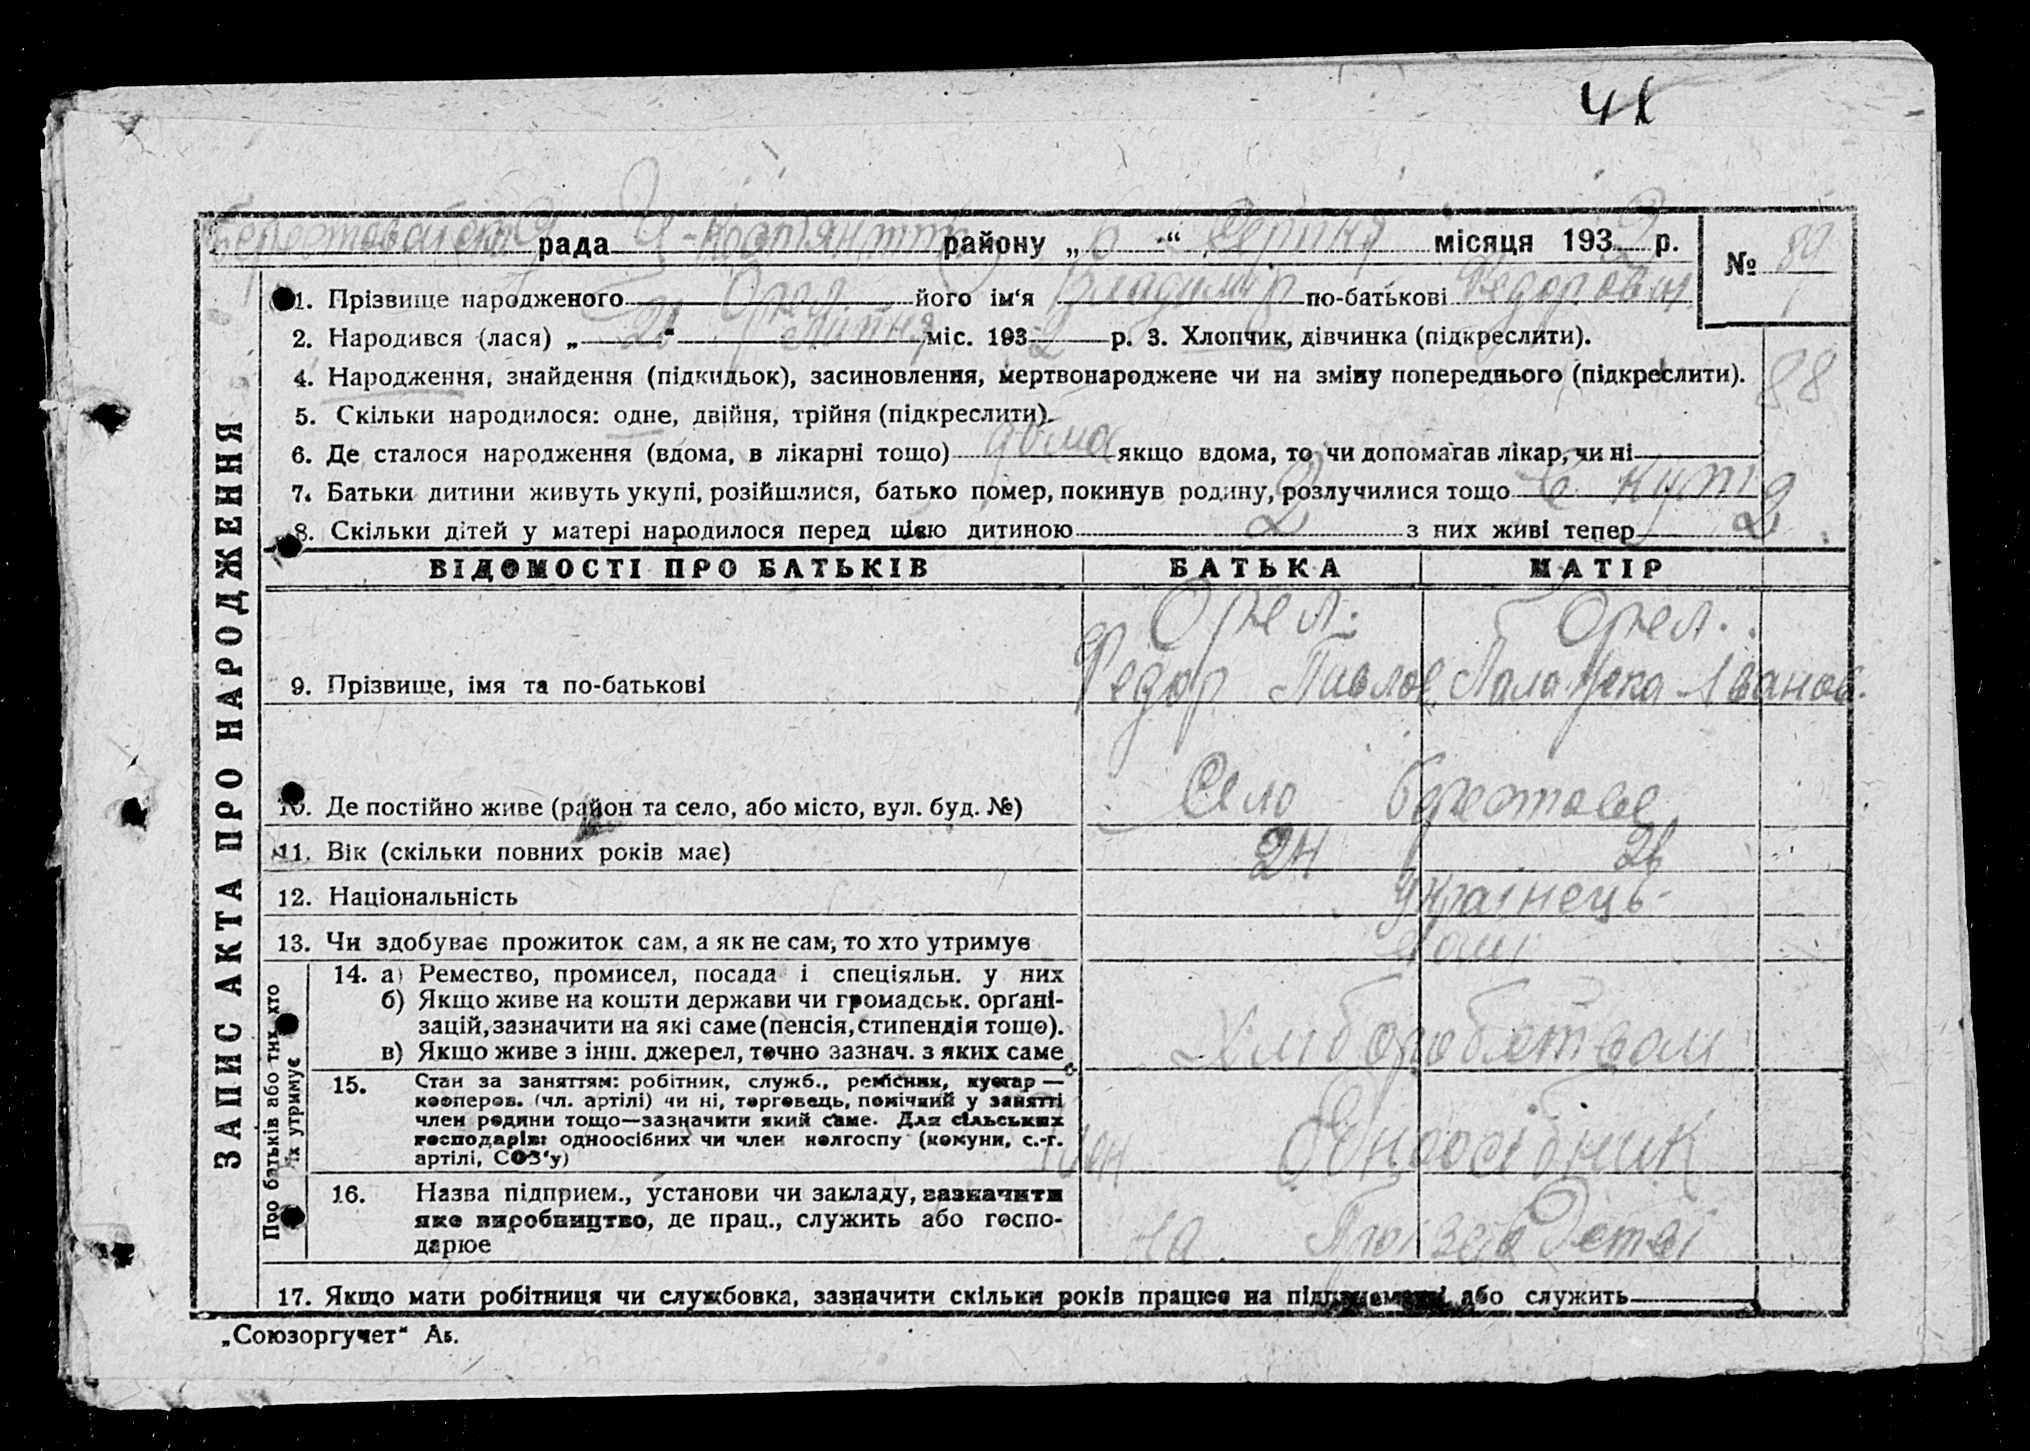 41
рада района „ 6 “ Серпня місяця 1932 р. № 89
1. Прізвище народженого Орел його ім‘я Владимир по-батькові Федорович
2. Народився (лася) „ “ Липня міс. 1932 р. 3. Хлопчик, дівчинка (підкреслити).
4. Народження, знайдення (підкидьок), засиновлення, мертвонароджене чи на зміну попереднього (підкреслити). 88
5. Скільки народилося: одне, двійня, трійня (підкреслити).
6. Де сталося народження (вдома, в лікарні тощо) дома якщо вдома, то чи допомагав лікар, чи ні
7. Батьки дитини живуть укупі, розійшлися, батько помер, покинув родину, розлучилися тощо
8. Скільки дітей у матері народилося перед цією дитиною 2 з них живі тепер 2
ЗАПИС АКТА ПРО НАРОДЖЕННЯ
ВІДОМОСТІ ПРО БАТЬКІВ БАТЬКА МАТІР
Орел. Орел.
9. Прізвище, імя та по-батькові Федор Павлов. Палажка Іванов.
10. Де постійно живе (район та село, або місто, вул. буд. №) Село Берестове
11. Вік (скільки повних років має) 24
12. Національність Українець
13. Чи здобуває прожиток сам, а як не сам, то хто утримує сами
Про батьків або тих хто їх утримує
14. а) Ремество, промисел, посада і спеціяльн. у них
б) Якщо живе на кошти держави чи громадськ. орґані-
зацій, зазначити на які саме (пенсія, стипендія тощо).
в) Якщо живе з інш. джерел, точно зазнач. з яких саме Хліборобством
15. Стан за заняттям: робітник, служб., ремісник, кустар —
кооперов. (чл. артілі) чи ні, торговець, помічний у занятті
член родини тощо—зазначити який саме. Для сільських
господарів: одноосібних чи член колгоспу (комуни, с.-г.
артілі, СОЗ‘у) Одноосібник
16. Назва підприєм., установи чи закладу, зазначити
яке виробництво, де прац., служить або госпо-
дарює на
17. Якщо мати робітниця чи службовка, зазначити скільки років працює на підприємстві або служить
„Союзоргучет“ Аб.